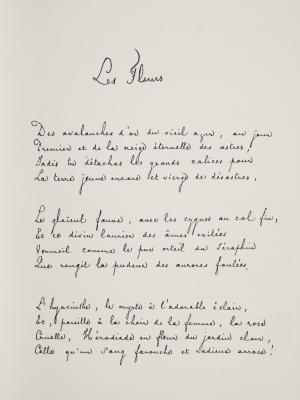 Les Fleurs
Des avalanches d'or du vieil azur, au jour
Premier et de la neige éternelle des astres,
Jadis tu détachas les grands calices pour
La terre jeune encore et vierge de désastres,
Le glaïeul fauve, avec les cygnes au col fin,
Et ce divin laurier des âmes exilées
Vermeil comme le pur orteil du séraphin
Que rougit la pudeur des aurores foulées,
L'hyacinthe, le myrte à l'adorable éclair,
Et, pareille à la chair de la femme, la rose
Cruelle, Hérodiade en fleur du jardin clair,
Celle qu'un sang farouche et radieux arrose!